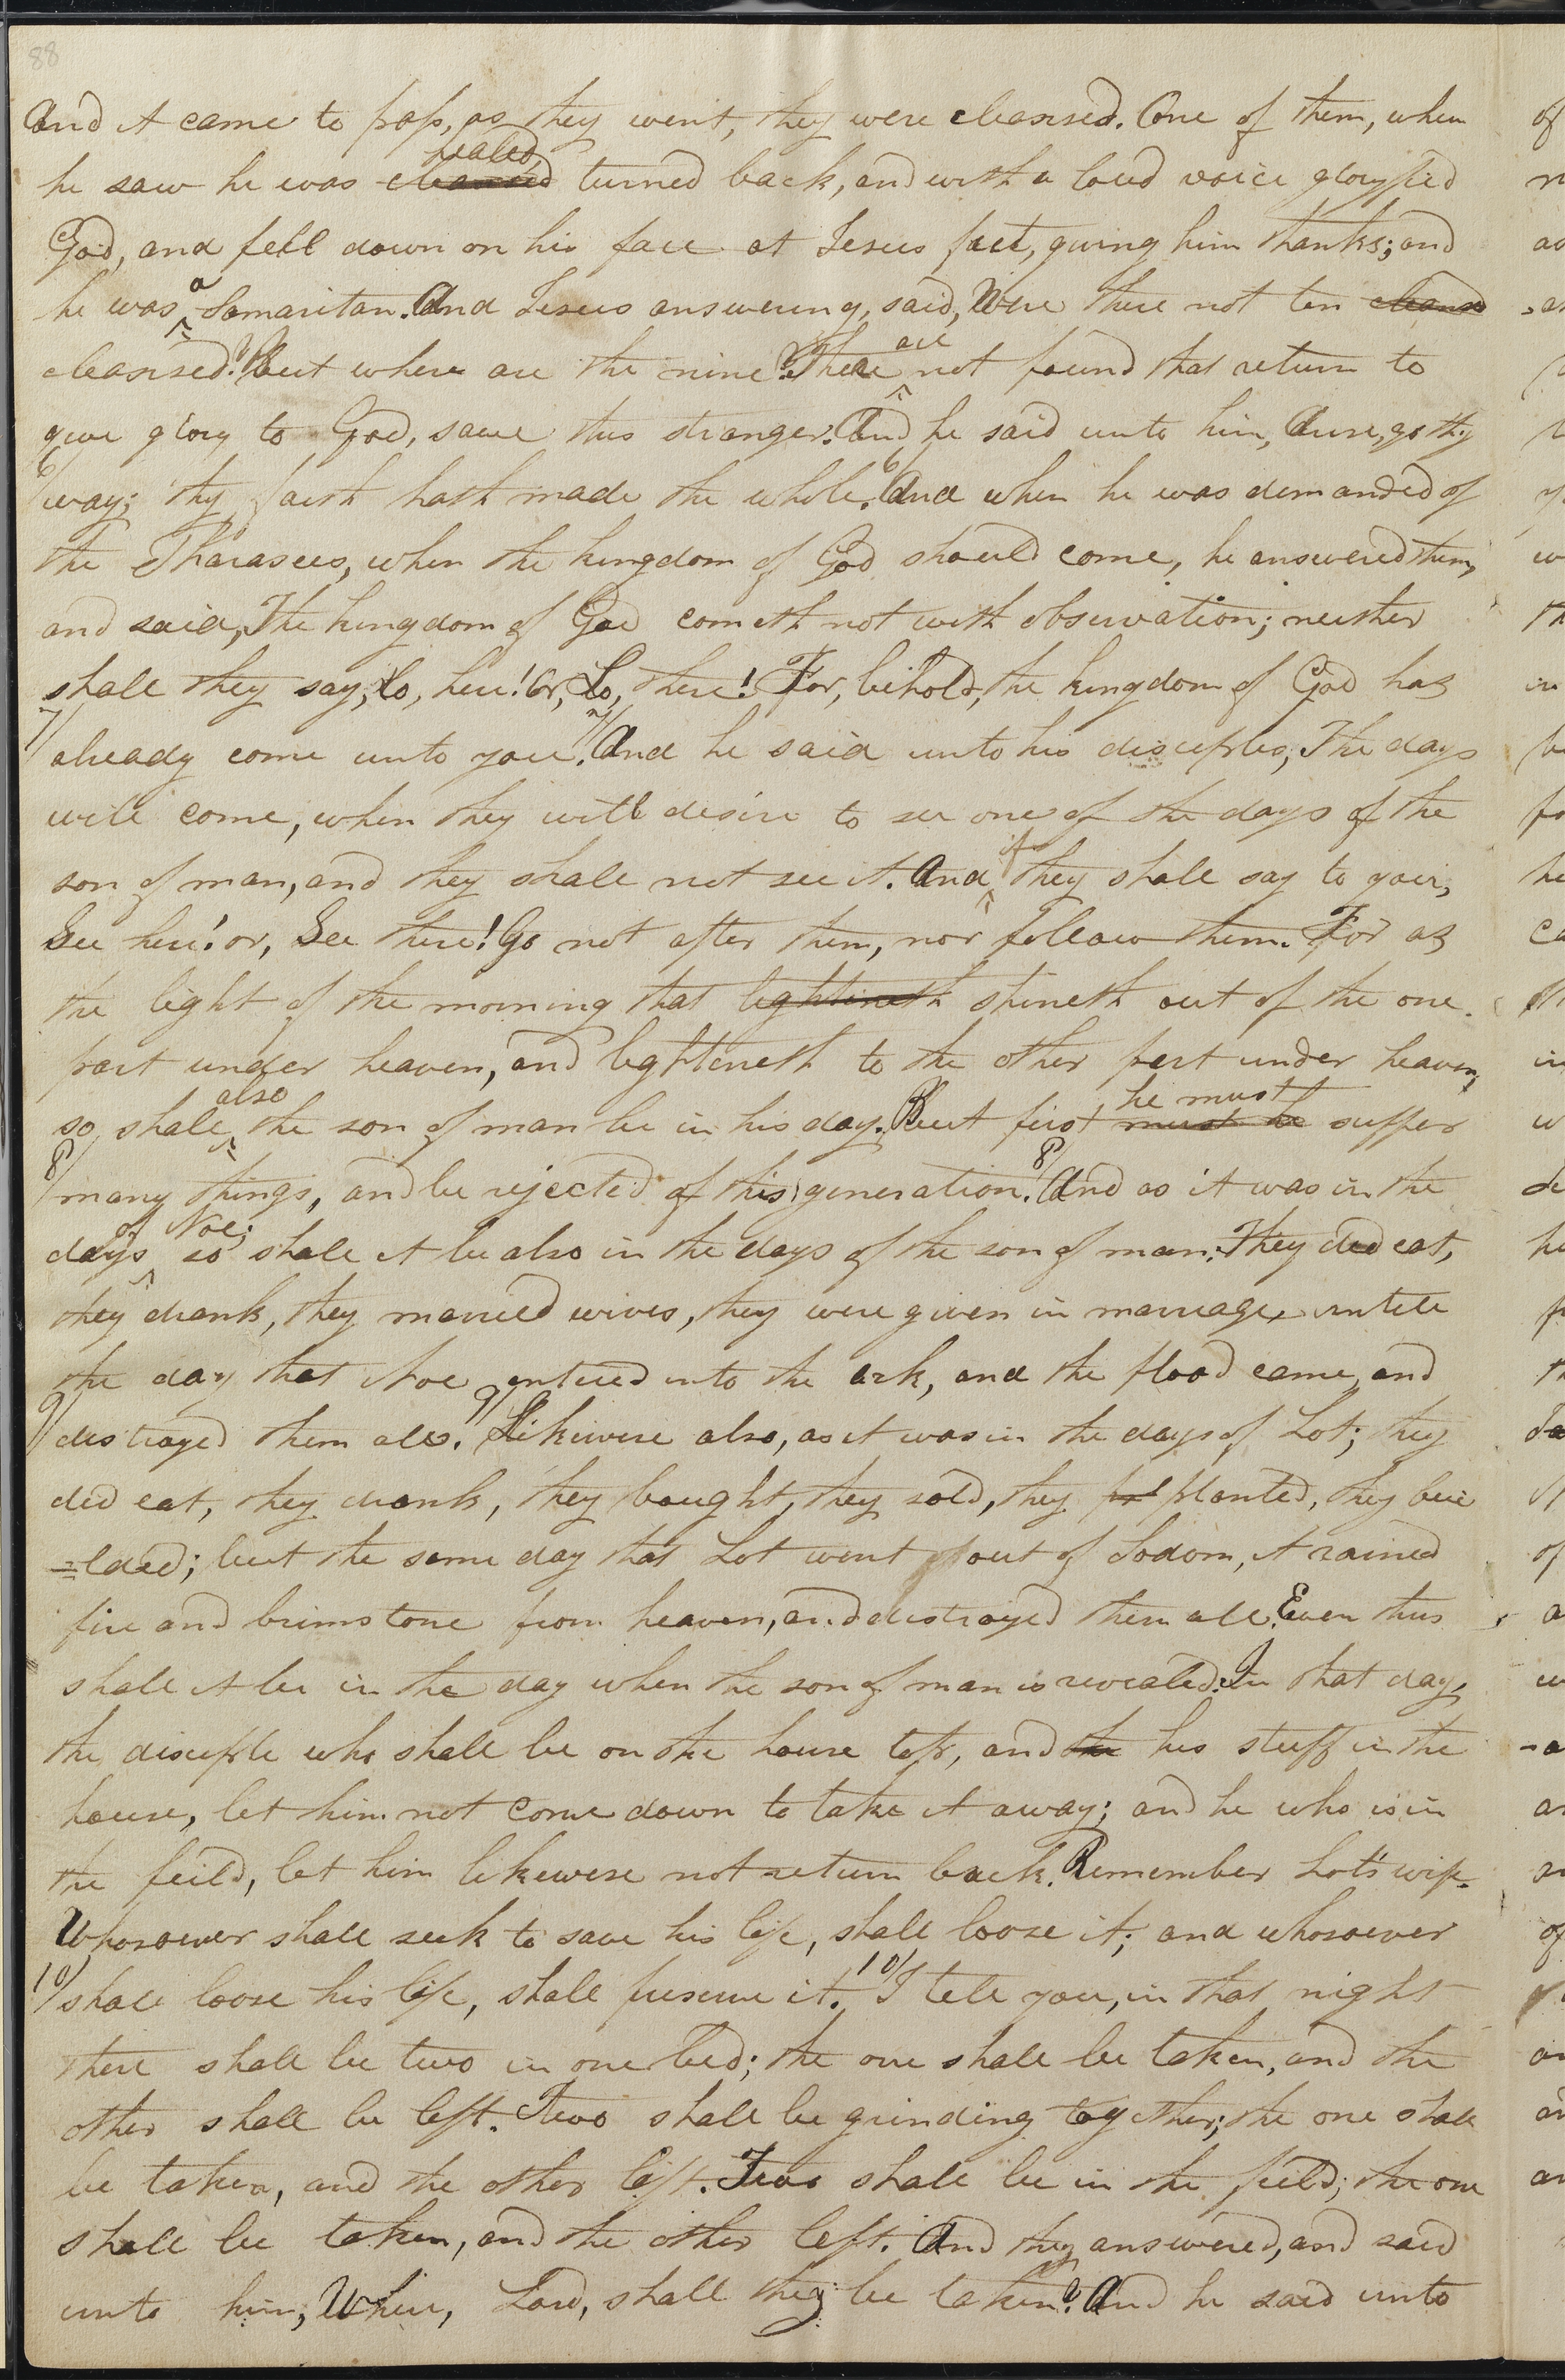 88
And it came to pass, as they went, they were cleansed. One of them, when
he saw he was cleansed healed turned back, and with a loud voice glorified
God, and fell down on his face at Jesus feet, giving him thanks; and
he was a Samaritan. And Jesus answering, said, Were there not ten cleansd
cleansed? But where are the nine? There are not found that return to
give glory to God, save this stranger. And he said unto him, Arise, go thy
6/ way; thy faith hath made the whole. 6/ And when he was demanded of
the Pharasees, when the kingdom of God should come, he answered them,
and said, The kingdom of God cometh not with observation; neither
shall they say, Lo, here! Or, Lo, there! For, behold, the kingdom of God has
7/ already come unto you. 7/ And he said unto his disciples, The days
will come, when they will desire to see one of the days of the
son of man, and they shall not see it. And if they shall say to you,
See here! or, See there! Go not after them, nor follow them. For as
the light of the morning that lightineth shineth out of the one
part under heaven, and lighteneth to the other part under heaven,
so shall also the son of man be in his day. But first must he he must suffer
8/ many things, and be rejected of this generation. 8/ And as it was in the
days of Noe; so shall it be also in the days of the son of man. They did eat,
they drank, they married wives, they were given in marriage, untill
the day that Noe entered into the ark, and the flood came, and
9/ distroyed them all. 9/ Likewise also, as it was in the days of Lot; they
did eat, they drank, they bought, they sold, they pl planted, they bui
=lded; but the same day that Lot went out of Sodom, it rained
fire and brimstone from heaven, and distroyed them all. Even thus
shall it be in the day when the son of man is revealed. In that day,
the disciple who shall be on the house top, and the his stuff in the
house, let him not come down to take it away; and he who is in
the feild, let him likewise not return back. Remember Lot's wife.
Whosoever shall seek to save his life, shall loose it; and whosoever
10/ shall loose his life, shall preserve it. 10/ I tell you, in that night
there shall be two in one bed; the one shall be taken, and the
other shall be left. Two shall be grinding together; the one shall
be taken, and the other left. Two shall be in the feild; the one
shall be taken, and the other left. And they answered, and said
unto him, Where, Lord, shall they be taken? And he said unto